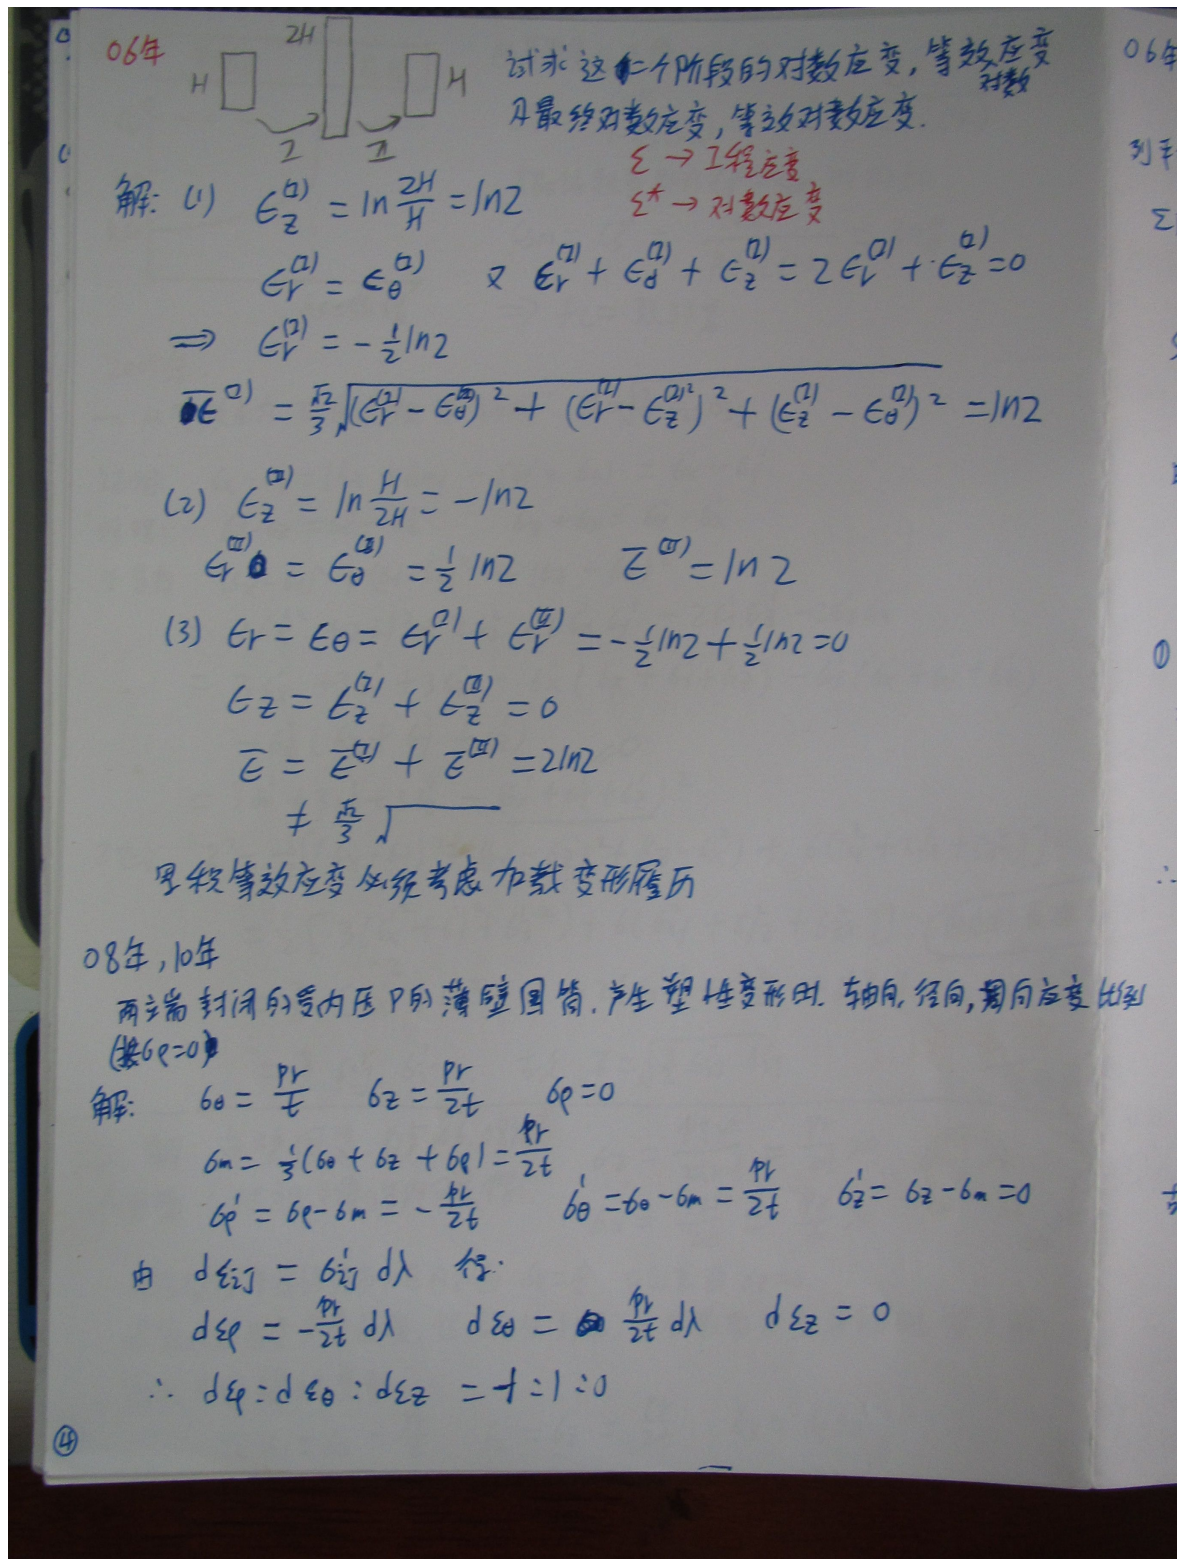 06年
H 2H H
I II
试求这二个阶段的对数应变,等效对数应变
及最终对数应变,等效对数应变.
ε → 工程应变
ε* → 对数应变
解: (1) ∈z^(I) = ln 2H/H = ln2
∈r^(I) = ∈θ^(I) 又 ∈r^(I) + ∈θ^(I) + ∈z^(I) = 2∈r^(I) + ∈z^(I) = 0
⇒ ∈r^(I) = -1/2 ln2
∈̄^(I) = √2/3 √((∈r^(I) - ∈θ^(I))^2 + (∈r^(I) - ∈z^(I))^2 + (∈z^(I) - ∈θ^(I))^2) = ln2
(2) ∈z^(II) = ln H/2H = -ln2
∈r^(II) = ∈θ^(II) = 1/2 ln2 ∈̄^(II) = ln2
(3) ∈r = ∈θ = ∈r^(I) + ∈r^(II) = -1/2 ln2 + 1/2 ln2 = 0
∈z = ∈z^(I) + ∈z^(II) = 0
∈̄ = ∈̄^(I) + ∈̄^(II) = 2ln2
≠ √2/3 √
累积等效应变必须考虑加载变形履历
08年,10年
两端封闭的受内压P的薄壁圆筒.产生塑性变形时.轴向,径向,周向应变比例
(σρ=0)
解: σθ = pr/t σz = pr/2t σρ=0
σm = 1/3(σθ + σz + σρ) = pr/2t
σρ' = σρ - σm = -pr/2t σθ' = σθ - σm = pr/2t σz' = σz - σm = 0
由 dεij = σij' dλ 得.
dερ = -pr/2t dλ dεθ = pr/2t dλ dεz = 0
∴ dερ : dεθ : dεz = -1 : 1 : 0
④
06年
∴
①